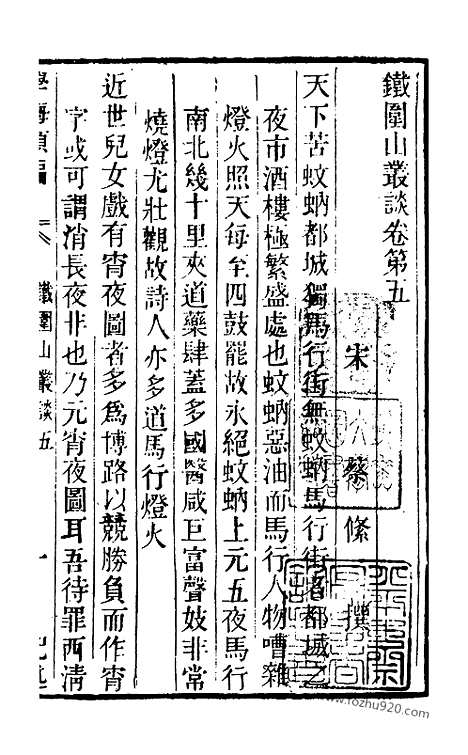 鐵圍山叢談卷第五
宋 蔡絛 撰
天下苦蚊蚋都城獨馬行街無蚊蚋馬行街者都城之
夜市酒樓極繁盛處也蚊蚋惡油而馬行人物嘈雜
燈火照天每至四鼓罷故永絕蚊蚋上元五夜馬行
南北幾十里夾道藥肆蓋多國醫咸巨富聲妓非常
燒燈尤壯觀故詩人亦多道馬行燈火
近世兒女戲有宵夜圖者多為博路以競勝負而作宵
字或可謂消長夜非也乃元宵夜圖耳吾待罪西清
學海類編 鐵圍山叢談五 一
www.fozhu920.com